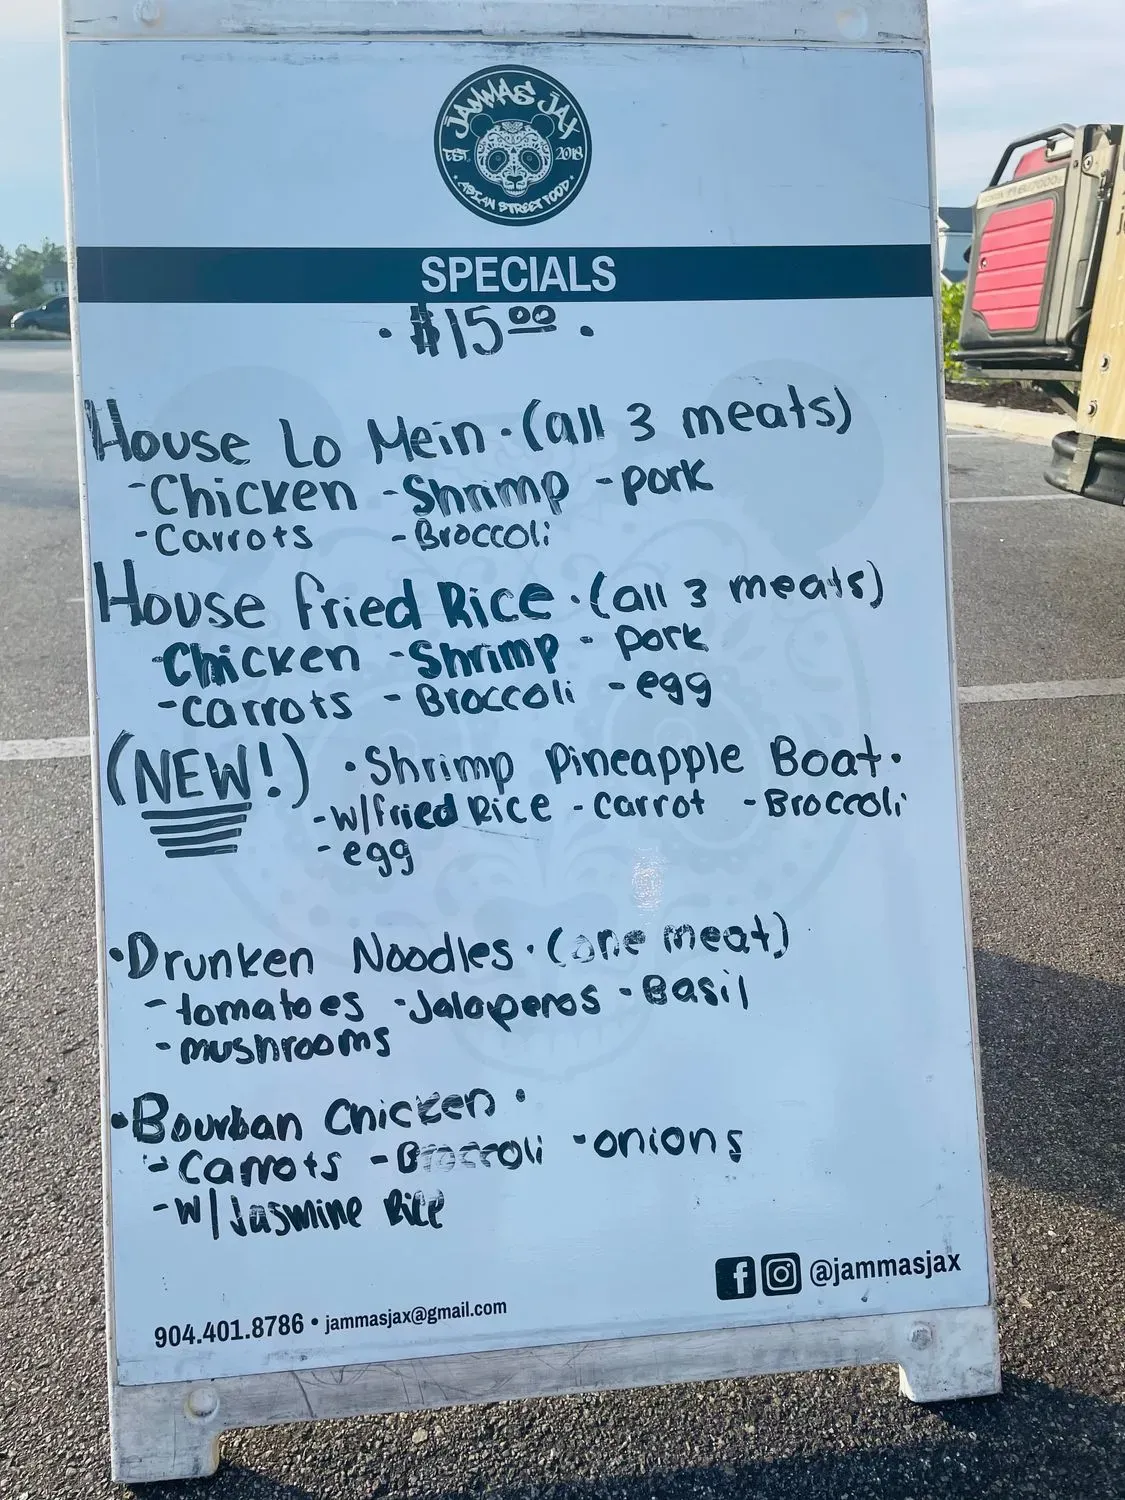 JAMMAS JAX
EST. 2018
• ASIAN STREET FOOD •
SPECIALS
• $15.00 •
House Lo Mein • (all 3 meats)
- Chicken - Shrimp - pork
- Carrots - Broccoli
House fried Rice • (all 3 meats)
- Chicken - Shrimp - pork
- carrots - Broccoli - egg
(NEW!) • Shrimp Pineapple Boat •
- w/fried Rice - Carrot - Broccoli
- egg
• Drunken Noodles • (one meat)
- tomatoes - Jalaperos - Basil
- mushrooms
• Bourban Chicken •
- Carrots - Broccoli - onions
- w/Jasmine Rice
@jammasjax
904.401.8786 • jammasjax@gmail.com